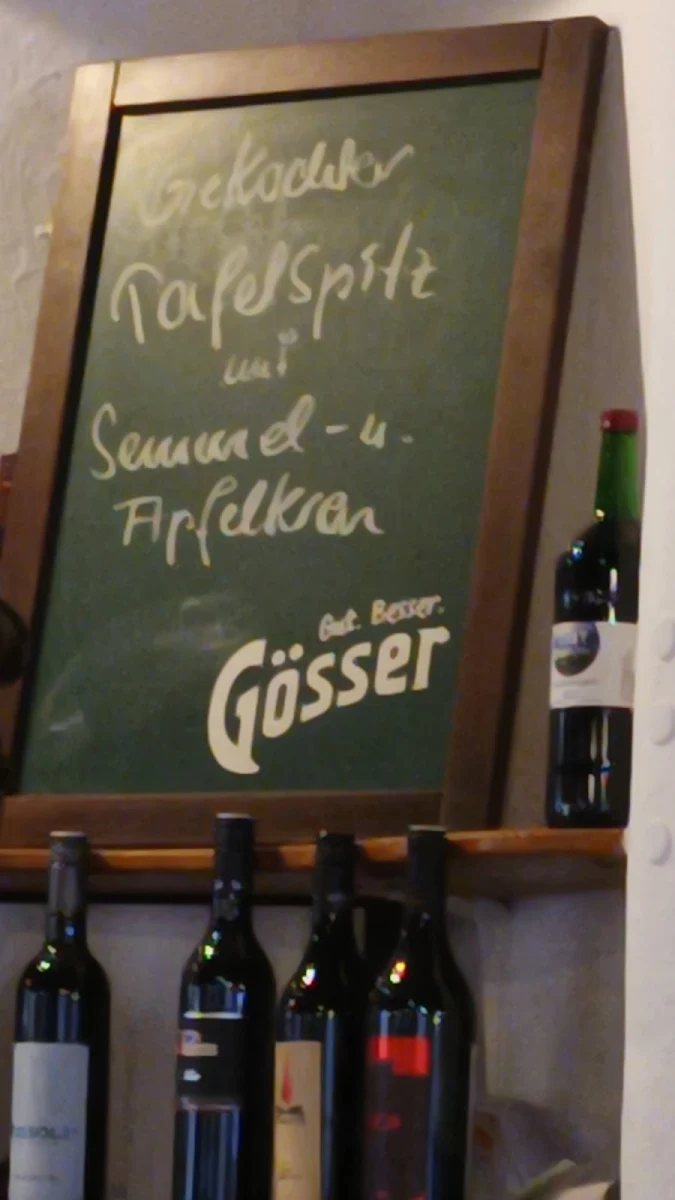 Gekochter
Tafelspitz
mit
Semmel-u.
Apfelkren
Gut. Besser.
Gösser